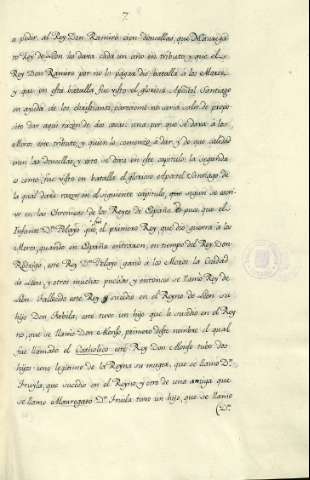 7
a pedir al Rey Don Ramiro cien doncellas, que Maurega
to Rey de Leon la dava cada un año en tributo, y que el
Rey Don Ramiro por no lo pagar dio batalla a los Moros,
y que en esta batalla fue visto el glorioso Apostol Santiago
en ayuda de los christianos, pareciome no seria salir de propo
sito dar aqui razon de dos cosas una por que se dava a los
Moros este tributo, y quien lo comenzo a dar, y de que calidad
eran las doncellas, y esto se dirá en este capitulo, la segunda
como fue visto en batalla el glorioso apostol Santiago de
la qual daré razon en el siguiente capitulo, que segun se escri
ve en las Chronicas de los Reyes de España, que el
Infante Dⁿ Pelayo fue el primero Rey que dio guerra a los
Moros, quando en España entraron, en tiempo del Rey Don
Rodrigo, este Rey Dⁿ Pelayo ganó a los Moros la Ciudad
de Leon, y otros muchos pueblos, y entonces se llamó Rey de
Leon. Fallecido este Rey sucedio en el Reyno de Leon su
hijo Don Fabila, este tuvo un hijo que le sucedio en el Rey
no, que se llamó Don Alonso, primero deste nombre el qual
fue llamado el Catholico este Rey Don Alonso tubo dos
hijos uno legitimo de la Reyna su muger, que se llamó Dⁿ
Fruyla, que sucedio en el Reyno, y otro de una amiga que
se llamó Mauregato Dⁿ Fruela tuvo un hijo, que se llamó
(Dⁿ